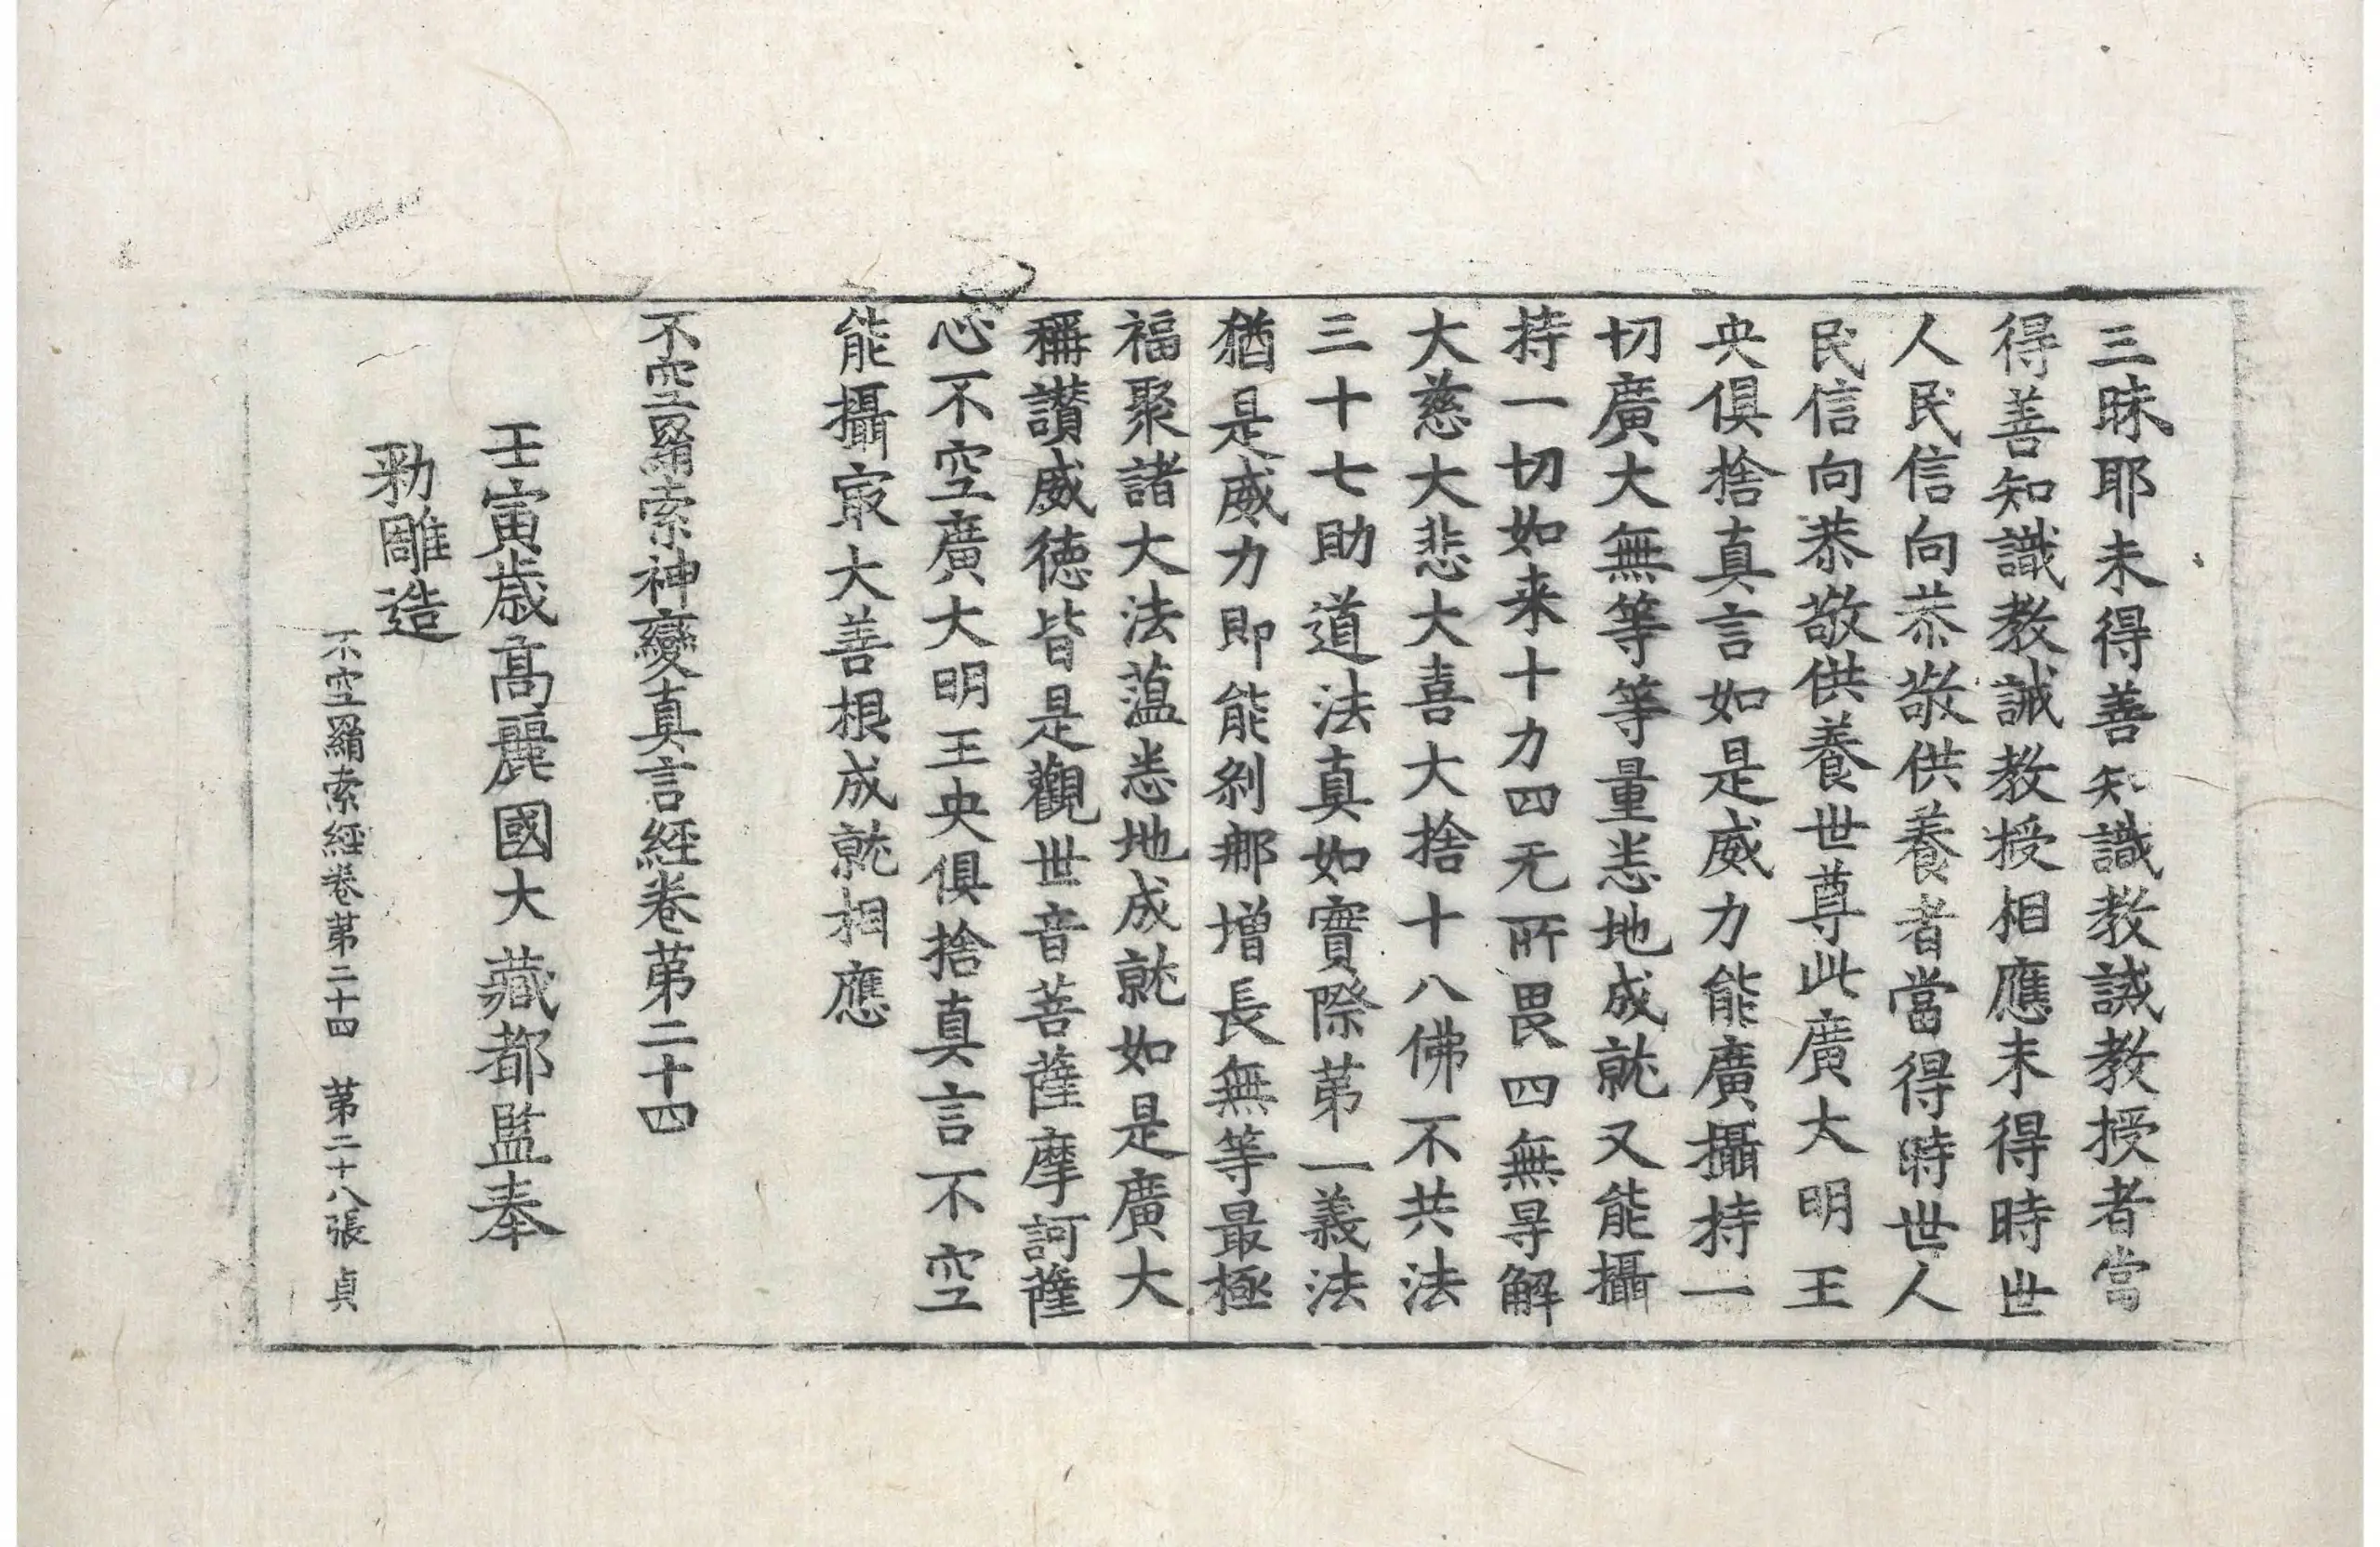 三昧耶未得善知識教誡教授者當
得善知識教誡教授相應未得時世
人民信向恭敬供養者當得時世人
民信向恭敬供養世尊此廣大明王
央俱捨真言如是威力能廣攝持一
切廣大無等等量悉地成就又能攝
持一切如来十力四无所畏四無㝵解
大慈大悲大喜大捨十八佛不共法
三十七助道法真如實際苐一義法
猶是威力即能刹那增長無等最極
福聚諸大法薀悉地成就如是廣大
稱讃威德皆是觀世音菩薩摩訶薩
心不空廣大明王央俱捨真言不空
能攝㝡大善根成就相應
不空羂索神變真言經卷苐二十四
壬寅歲高麗國大藏都監奉
勑雕造
不空羂索經卷苐二十四 苐二十八張 貞